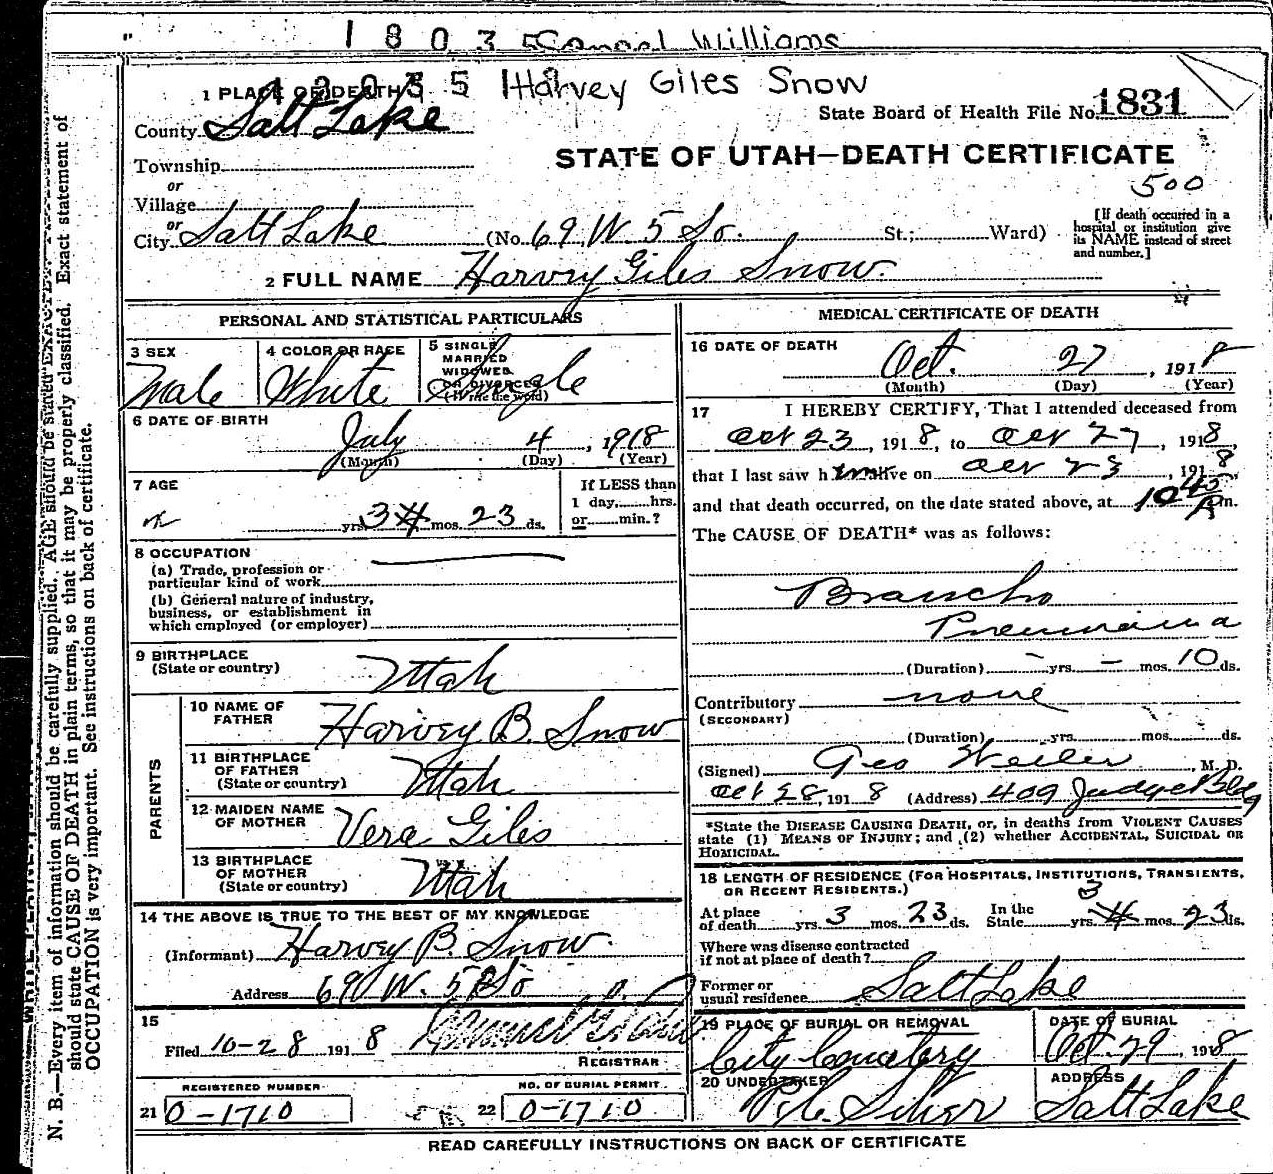 1803
Samuel Williams
Harvey Giles Snow
1 PLACE OF DEATH
State Board of Health File No. 1831
County Salt Lake
STATE OF UTAH—DEATH CERTIFICATE
Township
or
500
Village
or
City Salt Lake (No. 69 W. 5 So. St.; Ward)
[If death occurred in a hospital or institution give its NAME instead of street and number.]
2 FULL NAME Harvey Giles Snow
PERSONAL AND STATISTICAL PARTICULARS
3 SEX Male
4 COLOR OR RACE White
5 SINGLE MARRIED WIDOWED OR DIVORCED (Write the word) Single
6 DATE OF BIRTH
July 4, 1918
(Month) (Day) (Year)
7 AGE
yrs. 3 4 mos. 23 ds.
If LESS than
1 day, hrs.
or min.?
8 OCCUPATION
(a) Trade, profession or
particular kind of work
(b) General nature of industry,
business, or establishment in
which employed (or employer)
9 BIRTHPLACE
(State or country) Utah
PARENTS
10 NAME OF
FATHER Harvey B. Snow
11 BIRTHPLACE
OF FATHER
(State or country) Utah
12 MAIDEN NAME
OF MOTHER Vera Giles
13 BIRTHPLACE
OF MOTHER
(State or country) Utah
14 THE ABOVE IS TRUE TO THE BEST OF MY KNOWLEDGE
(Informant) Harvey B. Snow.
Address 69 W. 5 So
15
Filed 10-28 1918
REGISTRAR
REGISTERED NUMBER
21 0-1710
NO. OF BURIAL PERMIT
22 0-1710
MEDICAL CERTIFICATE OF DEATH
16 DATE OF DEATH
Oct. 27, 1918
(Month) (Day) (Year)
17 I HEREBY CERTIFY, That I attended deceased from
Oct 23, 1918, to Oct 27, 1918,
that I last saw him alive on Oct 23, 1918,
and that death occurred, on the date stated above, at 10 45 A m.
The CAUSE OF DEATH* was as follows:
Broncho
Pneumonia
(Duration) - yrs. - mos. 10 ds.
Contributory none
(SECONDARY)
(Duration) yrs. mos. ds.
(Signed) Geo Weiler M. D.
Oct 28, 1918 (Address) 409 Judge Bldg
*State the DISEASE CAUSING DEATH, or, in deaths from VIOLENT CAUSES
state (1) MEANS OF INJURY; and (2) whether ACCIDENTAL, SUICIDAL OR
HOMICIDAL.
18 LENGTH OF RESIDENCE (FOR HOSPITALS, INSTITUTIONS, TRANSIENTS,
OR RECENT RESIDENTS.)
At place of death yrs. 3 mos. 23 ds. In the State yrs. 3 4 mos. 23 ds.
Where was disease contracted
if not at place of death?
Former or
usual residence Salt Lake
19 PLACE OF BURIAL OR REMOVAL
City Cemetery
DATE OF BURIAL
Oct. 29, 1918
20 UNDERTAKER
ADDRESS
Salt Lake
READ CAREFULLY INSTRUCTIONS ON BACK OF CERTIFICATE
N. B.—Every item of information should be carefully supplied. AGE should be stated EXACTLY.
should state CAUSE OF DEATH in plain terms, so that it may be properly classified. Exact statement of
OCCUPATION is very important. See instructions on back of certificate.